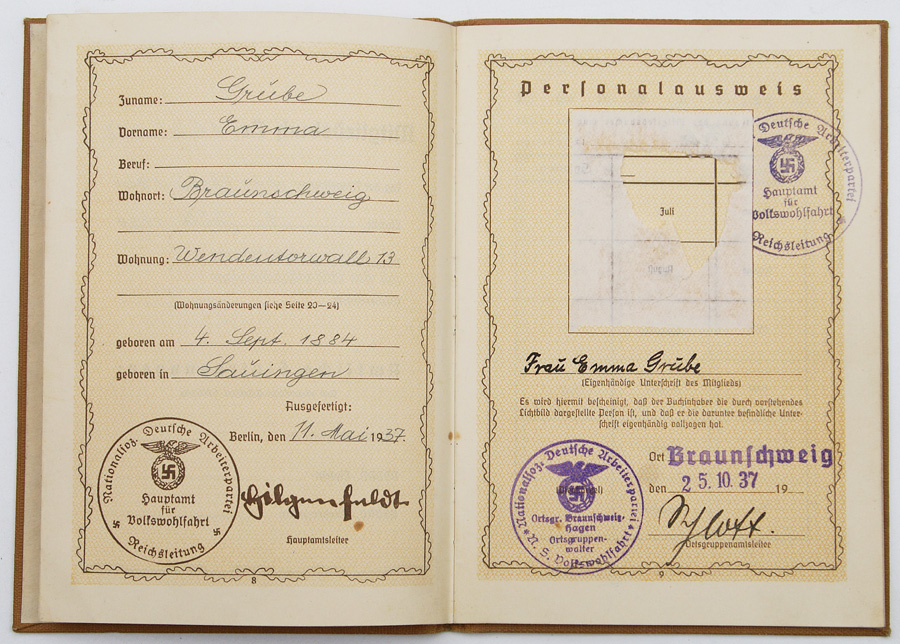 Zuname: Grübe
Vorname: Emma
Beruf:
Wohnort: Braunschweig
Wohnung: Wendentorwall 13
(Wohnungsänderungen siehe Seite 20—24)
geboren am 4. Sept. 1884
geboren in Sauingen
Ausgefertigt:
Berlin, den 11. Mai 1937.
Nationalsoz. Deutsche Arbeiterpartei
Hauptamt
für
Volkswohlfahrt
Reichsleitung
Hilgenfeldt
Hauptamtsleiter
8
Personalausweis
Juli
Deutsche Arbeiterpartei
Hauptamt
für
Volkswohlfahrt
Reichsleitung
Frau Emma Grübe
(Eigenhändige Unterschrift des Mitglieds)
Es wird hiermit bescheinigt, daß der Buchinhaber die durch vorstehendes
Lichtbild dargestellte Person ist, und daß er die darunter befindliche Unter-
schrift eigenhändig vollzogen hat.
Ort Braunschweig
den 25.10.37 19
Nationalsoz. Deutsche Arbeiterpartei
Ortsgr. Braunschweig-
Hagen
Ortsgruppen-
walter
N. S. Volkswohlfahrt
Ortsgruppenamtsleiter
9